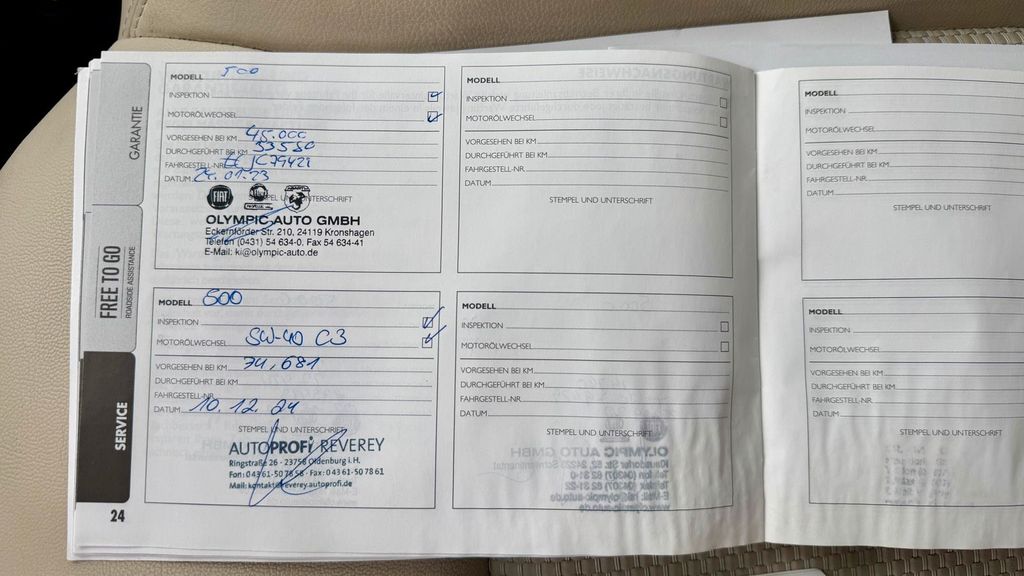 GARANTIE
FREE TO GO
ROADSIDE ASSISTANCE
SERVICE
24
MODELL 500
INSPEKTION
MOTORÖLWECHSEL
VORGESEHEN BEI KM 45.000
DURCHGEFÜHRT BEI KM 53550
FAHRGESTELL-NR.
DATUM 24.01.23
STEMPEL UND UNTERSCHRIFT
FIAT
OLYMPIC AUTO GMBH
Eckernförder Str. 210, 24119 Kronshagen
Telefon (0431) 54 634-0, Fax 54 634-41
E-Mail: ki@olympic-auto.de
MODELL 500
INSPEKTION
MOTORÖLWECHSEL 5W-40 C3
VORGESEHEN BEI KM 74,681
DURCHGEFÜHRT BEI KM
FAHRGESTELL-NR.
DATUM 10.12.24
STEMPEL UND UNTERSCHRIFT
AUTOPROFI REVEREY
Ringstraße 26 - 23758 Oldenburg i.H.
Fon: 0 43 61-50 78 58 - Fax: 0 43 61-50 78 61
Mail: kontakt@reverey.autoprofi.de
MODELL
INSPEKTION
MOTORÖLWECHSEL
VORGESEHEN BEI KM
DURCHGEFÜHRT BEI KM
FAHRGESTELL-NR.
DATUM
STEMPEL UND UNTERSCHRIFT
MODELL
INSPEKTION
MOTORÖLWECHSEL
VORGESEHEN BEI KM
DURCHGEFÜHRT BEI KM
FAHRGESTELL-NR.
DATUM
STEMPEL UND UNTERSCHRIFT
MODELL
INSPEKTION
MOTORÖLWECHSEL
VORGESEHEN BEI KM
DURCHGEFÜHRT BEI KM
FAHRGESTELL-NR.
DATUM
STEMPEL UND UNTERSCHRIFT
MODELL
INSPEKTION
MOTORÖLWECHSEL
VORGESEHEN BEI KM
DURCHGEFÜHRT BEI KM
FAHRGESTELL-NR.
DATUM
STEMPEL UND UNTERSCHRIFT